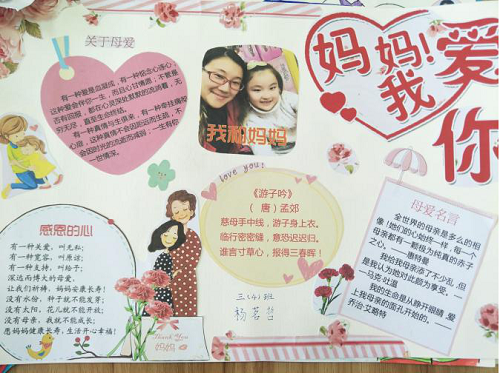 关于母爱
有一种爱是血凝成，有一种惦念心连心，
这种爱会伴你一生，而且心甘情愿，不管是
否有回报，都在心灵深处默默的流淌着，无
穷无尽，直至生命终结。
有一种真情与生俱来，有一种牵挂痛彻
心扉，这种真情不会因距远而生疏，不
会因时光的流逝而减弱；一生有你
一世情深。
我和妈妈
妈妈!
我爱
你
感恩的心
有一种关爱，叫无私；
有一种宽容，叫原谅；
有一种支持，叫给予；
深远而博大的母爱，
让我们祈祷，妈妈安康长寿！
没有水份，种子就不能发芽；
没有太阳，花儿就不能开放；
没有母亲，我就不能成长；
愿妈妈健康长寿，生活开心幸福！
love you!
《游子吟》
（唐）孟郊
慈母手中线，游子身上衣。
临行密密缝，意恐迟迟归。
谁言寸草心，报得三春晖！
Thank You
妈妈
三（4）班
杨茗哲
母爱名言
全世界的母亲是多么的相
像！她们的心始终一样，每一个
母亲都有一颗极为纯真的赤子
之心。——惠特曼
我给我母亲添了不少乱，但
是我认为她对此颇为享受。——
—马克·吐温
我的生命是从睁开眼睛，爱
上我母亲的面孔开始的。——
乔治·艾略特